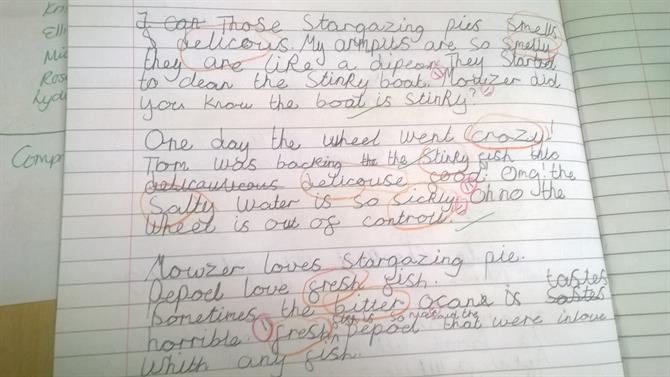 Kri
Elli
Mic
Rose
Lyd
Comp
I can Those Stargazing pies smells
delicous. My armpits are so smelly
they are like a They started
to clean the Stinky boat. Mowzer did
you know the boat is stinky?
One day the wheel went crazy!
Tom was backing the the Stinky fish into
delicouse food. Omg the
Salty water is so sickly. Oh no the
wheel is out of controll.
Mowzer loves Stargazing pie.
Pepoel love fresh fish.
Sometimes the bitter is tastes
horrible. fresh Pepoel that were inlove
Whith any fish.